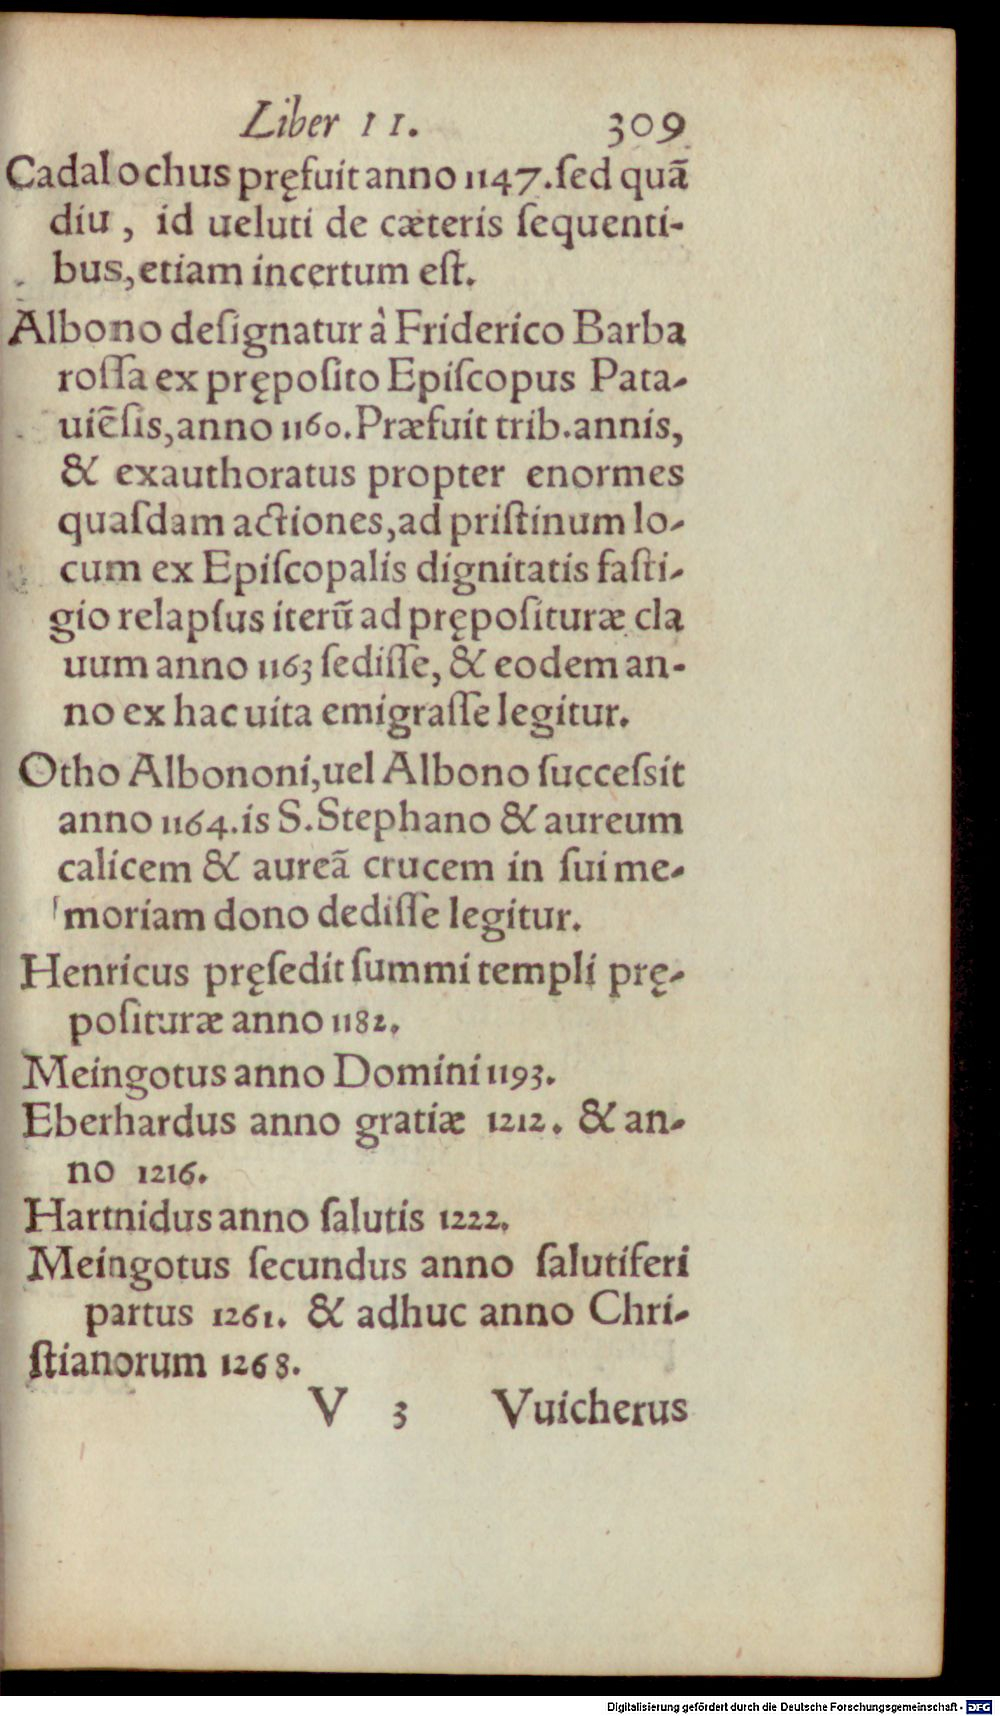 Liber 11. 309
Cadalochus pręfuit anno 1147. ſed quã
diu, id ueluti de cæteris ſequenti-
bus, etiam incertum eſt.
Albono deſignatur à Friderico Barba
roſſa ex prępoſito Epiſcopus Pata-
uiẽſis, anno 1160. Præfuit trib. annis,
& exauthoratus propter enormes
quaſdam actiones, ad priſtinum lo-
cum ex Epiſcopalis dignitatis faſti-
gio relapſus iterũ ad prępoſituræ cla
uum anno 1163 ſediſſe, & eodem an-
no ex hac uita emigraſſe legitur.
Otho Albononi, uel Albono ſucceſsit
anno 1164. is S. Stephano & aureum
calicem & aureã crucem in ſui me-
moriam dono dediſſe legitur.
Henricus pręſedit ſummi templi prę-
poſituræ anno 1182.
Meingotus anno Domini 1193.
Eberhardus anno gratiæ 1212. & an-
no 1216.
Hartnidus anno ſalutis 1222.
Meingotus ſecundus anno ſalutiferi
partus 1261. & adhuc anno Chri-
ſtianorum 1268.
V 3 Vuicherus
Digitalisierung gefördert durch die Deutsche Forschungsgemeinschaft - DFG